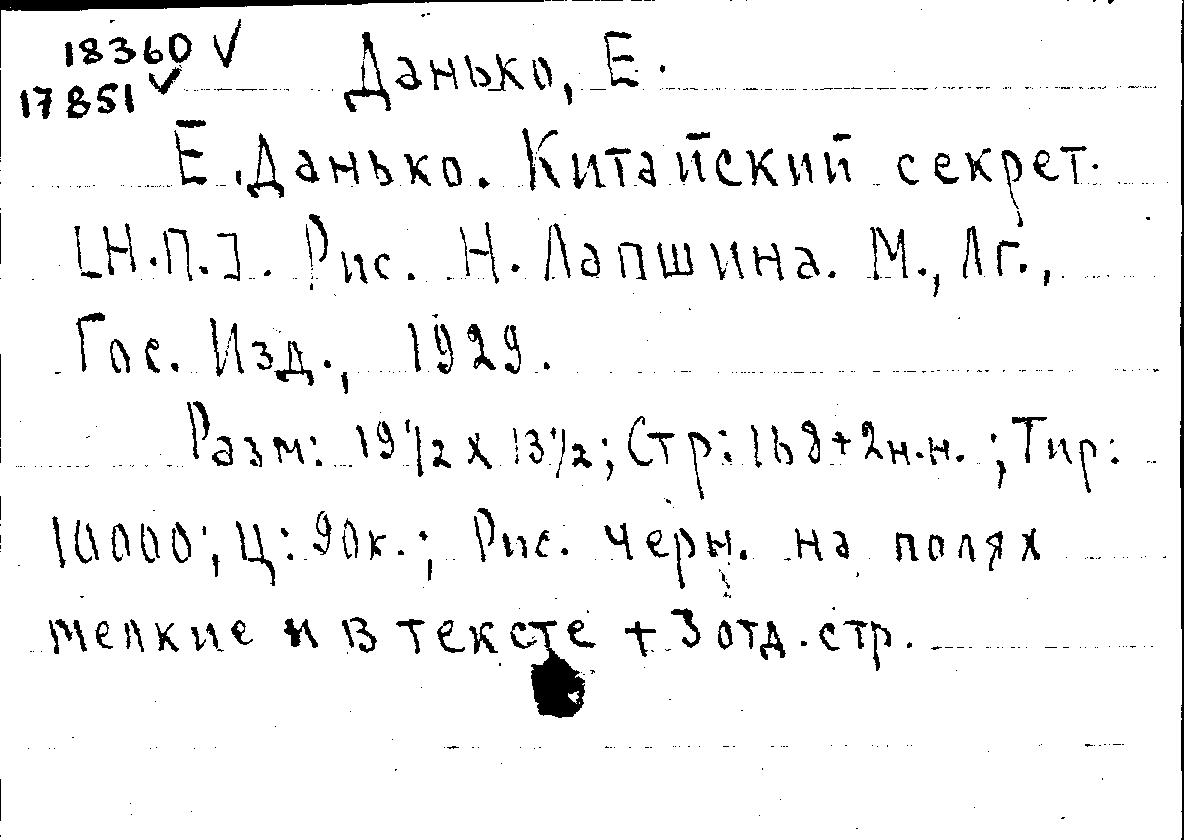 18360 V
17851 V
Данько, Е.
Е. Данько. Китайский секрет.
[Н.П.]. Рис. Н. Лапшина. М., Лг.,
Гос. Изд., 1929.
Разм: 19 1/2 х 13 1/2; Стр: 168+2н.н.; Тир:
10000; Ц: 90к.; Рис. черн. на полях
мелкие и в тексте + 3 отд. стр.